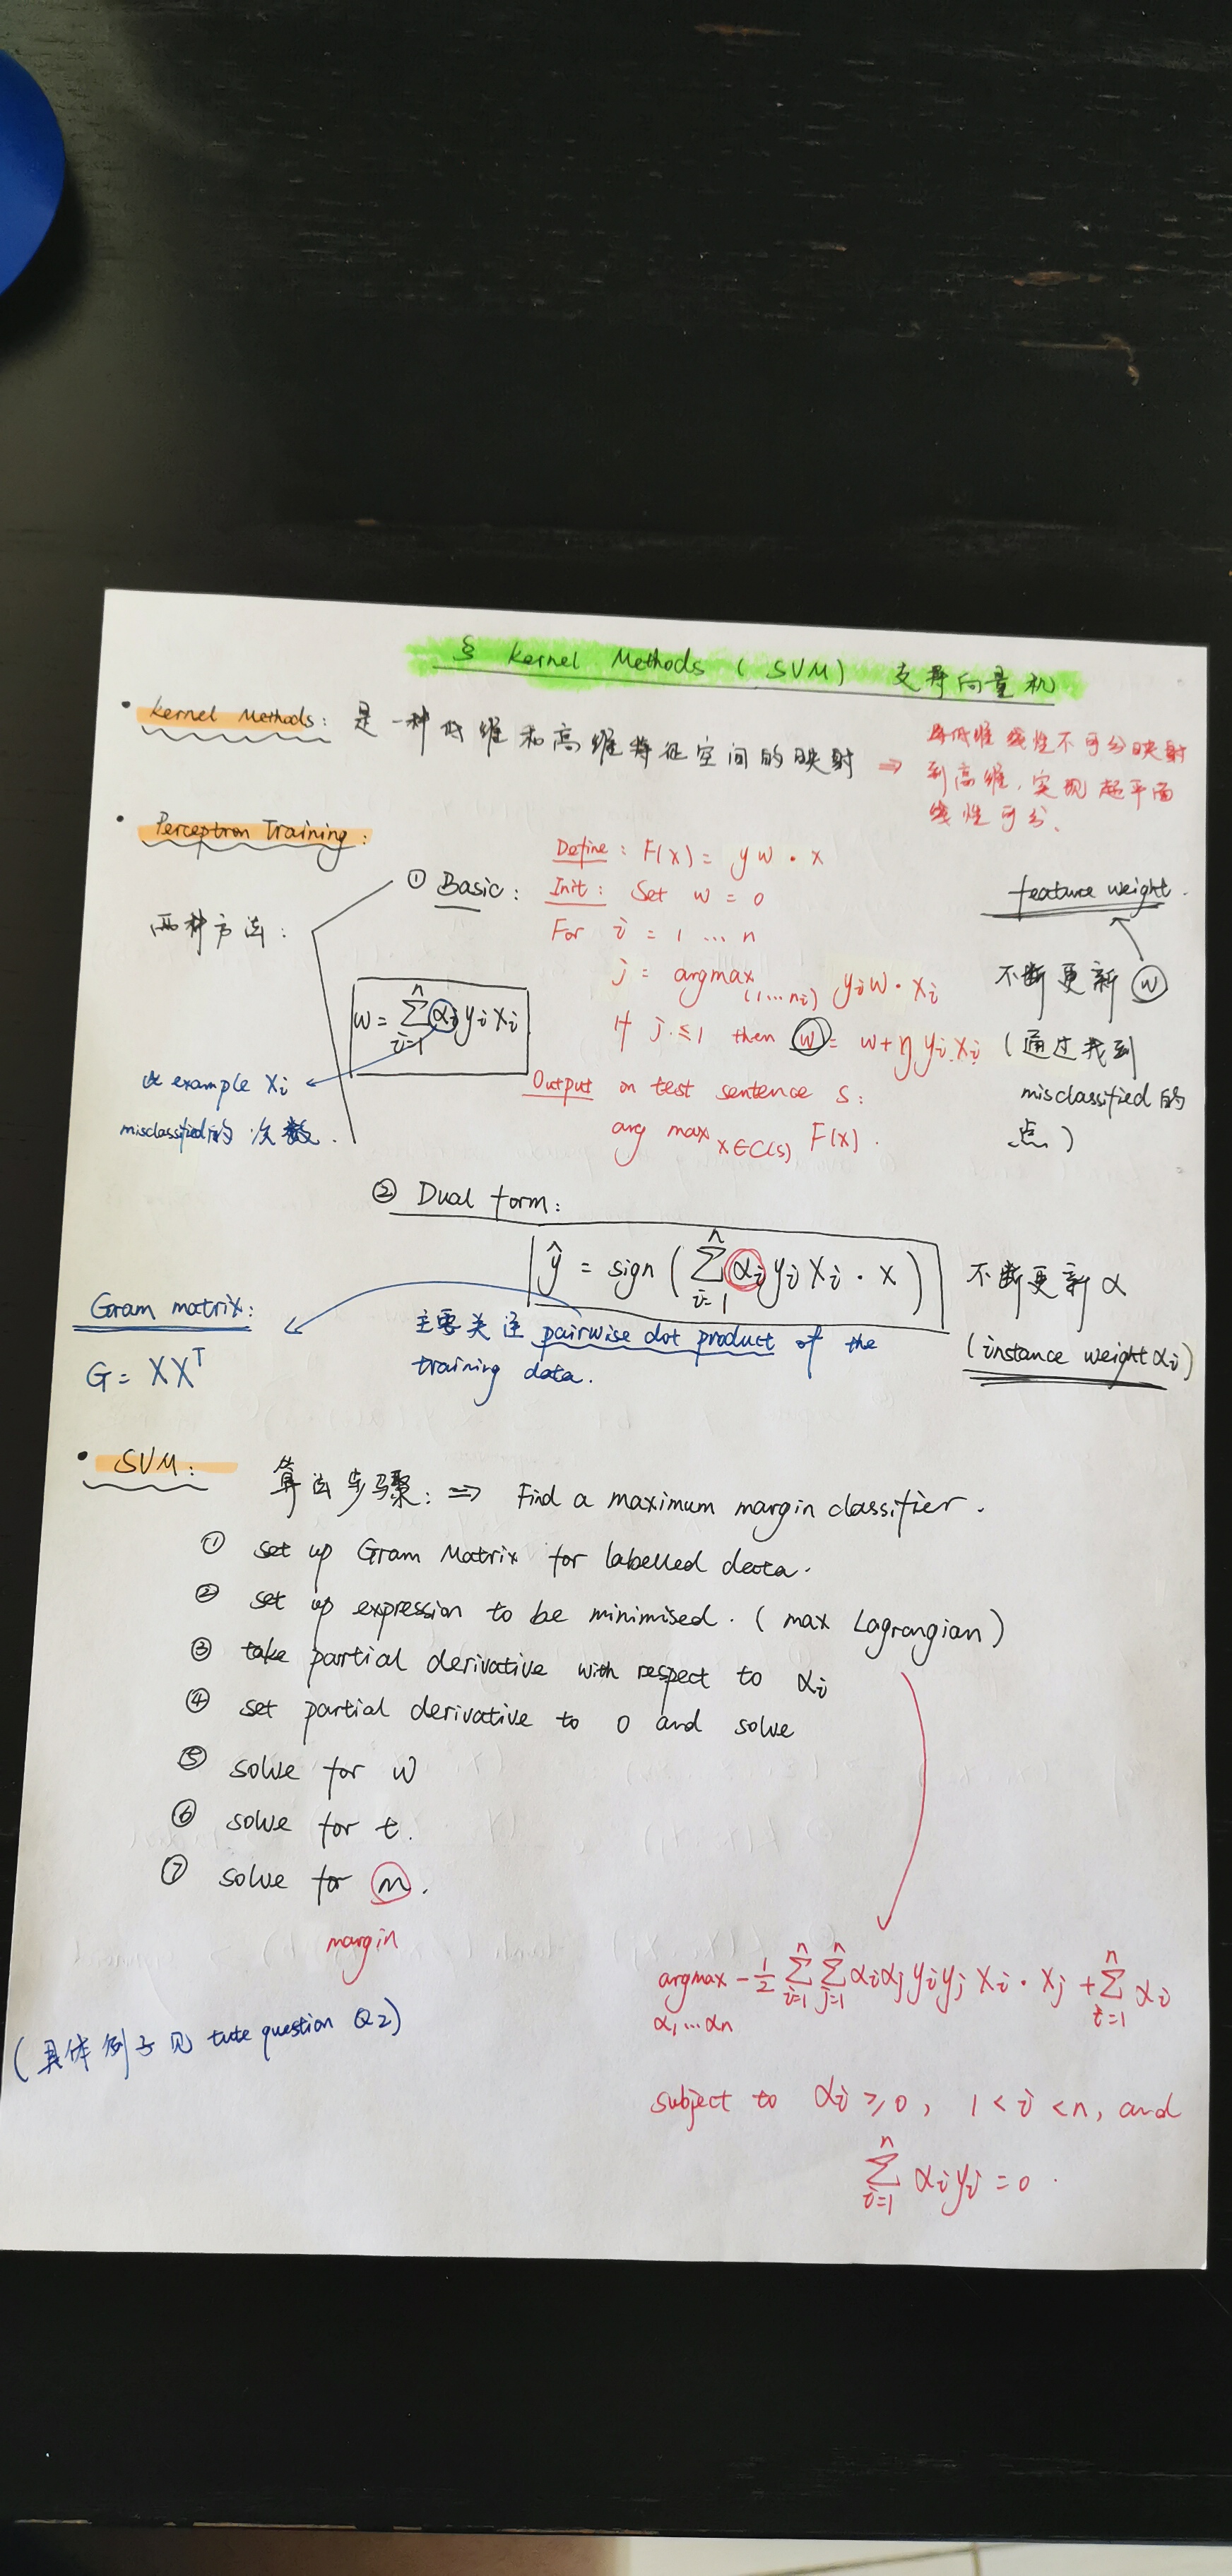 § Kernel Methods (SVM) 支持向量机
• Kernel Methods: 是一种低维和高维特征空间的映射 ⇒ 将低维线性不可分映射
到高维,实现超平面
线性可分.
• Perceptron Training:
两种方法:
① Basic:
Define: F(x) = y w · x
Init: Set w = 0
For i = 1 ... n
j = argmax(1...ni) yi w · xi
If j ≤ 1 then w = w + η yi xi
Output on test sentence s:
arg max x∈C(s) F(x).
feature weight.
不断更新 w
(通过找到
misclassified 的
点)
w = Σ(i=1 to n) αi yi xi
example xi
misclassified的次数.
② Dual form:
ŷ = sign ( Σ(i=1 to n) αi yi xi · x )
不断更新 α
(instance weight αi)
主要关注 pairwise dot product of the
training data.
Gram matrix:
G = XXᵀ
• SVM: 算法步骤: ⇒ Find a maximum margin classifier.
① set up Gram Matrix for labelled data.
② set up expression to be minimised. (max Lagrangian)
③ take partial derivative with respect to αi
④ set partial derivative to 0 and solve
⑤ solve for w
⑥ solve for t.
⑦ solve for m.
margin
(具体例子见 tute question Q2)
argmax α1...αn -1/2 Σ(i=1 to n) Σ(j=1 to n) αi αj yi yj xi · xj + Σ(i=1 to n) αi
subject to αi ≥ 0, 1 < i < n, and
Σ(i=1 to n) αi yi = 0.